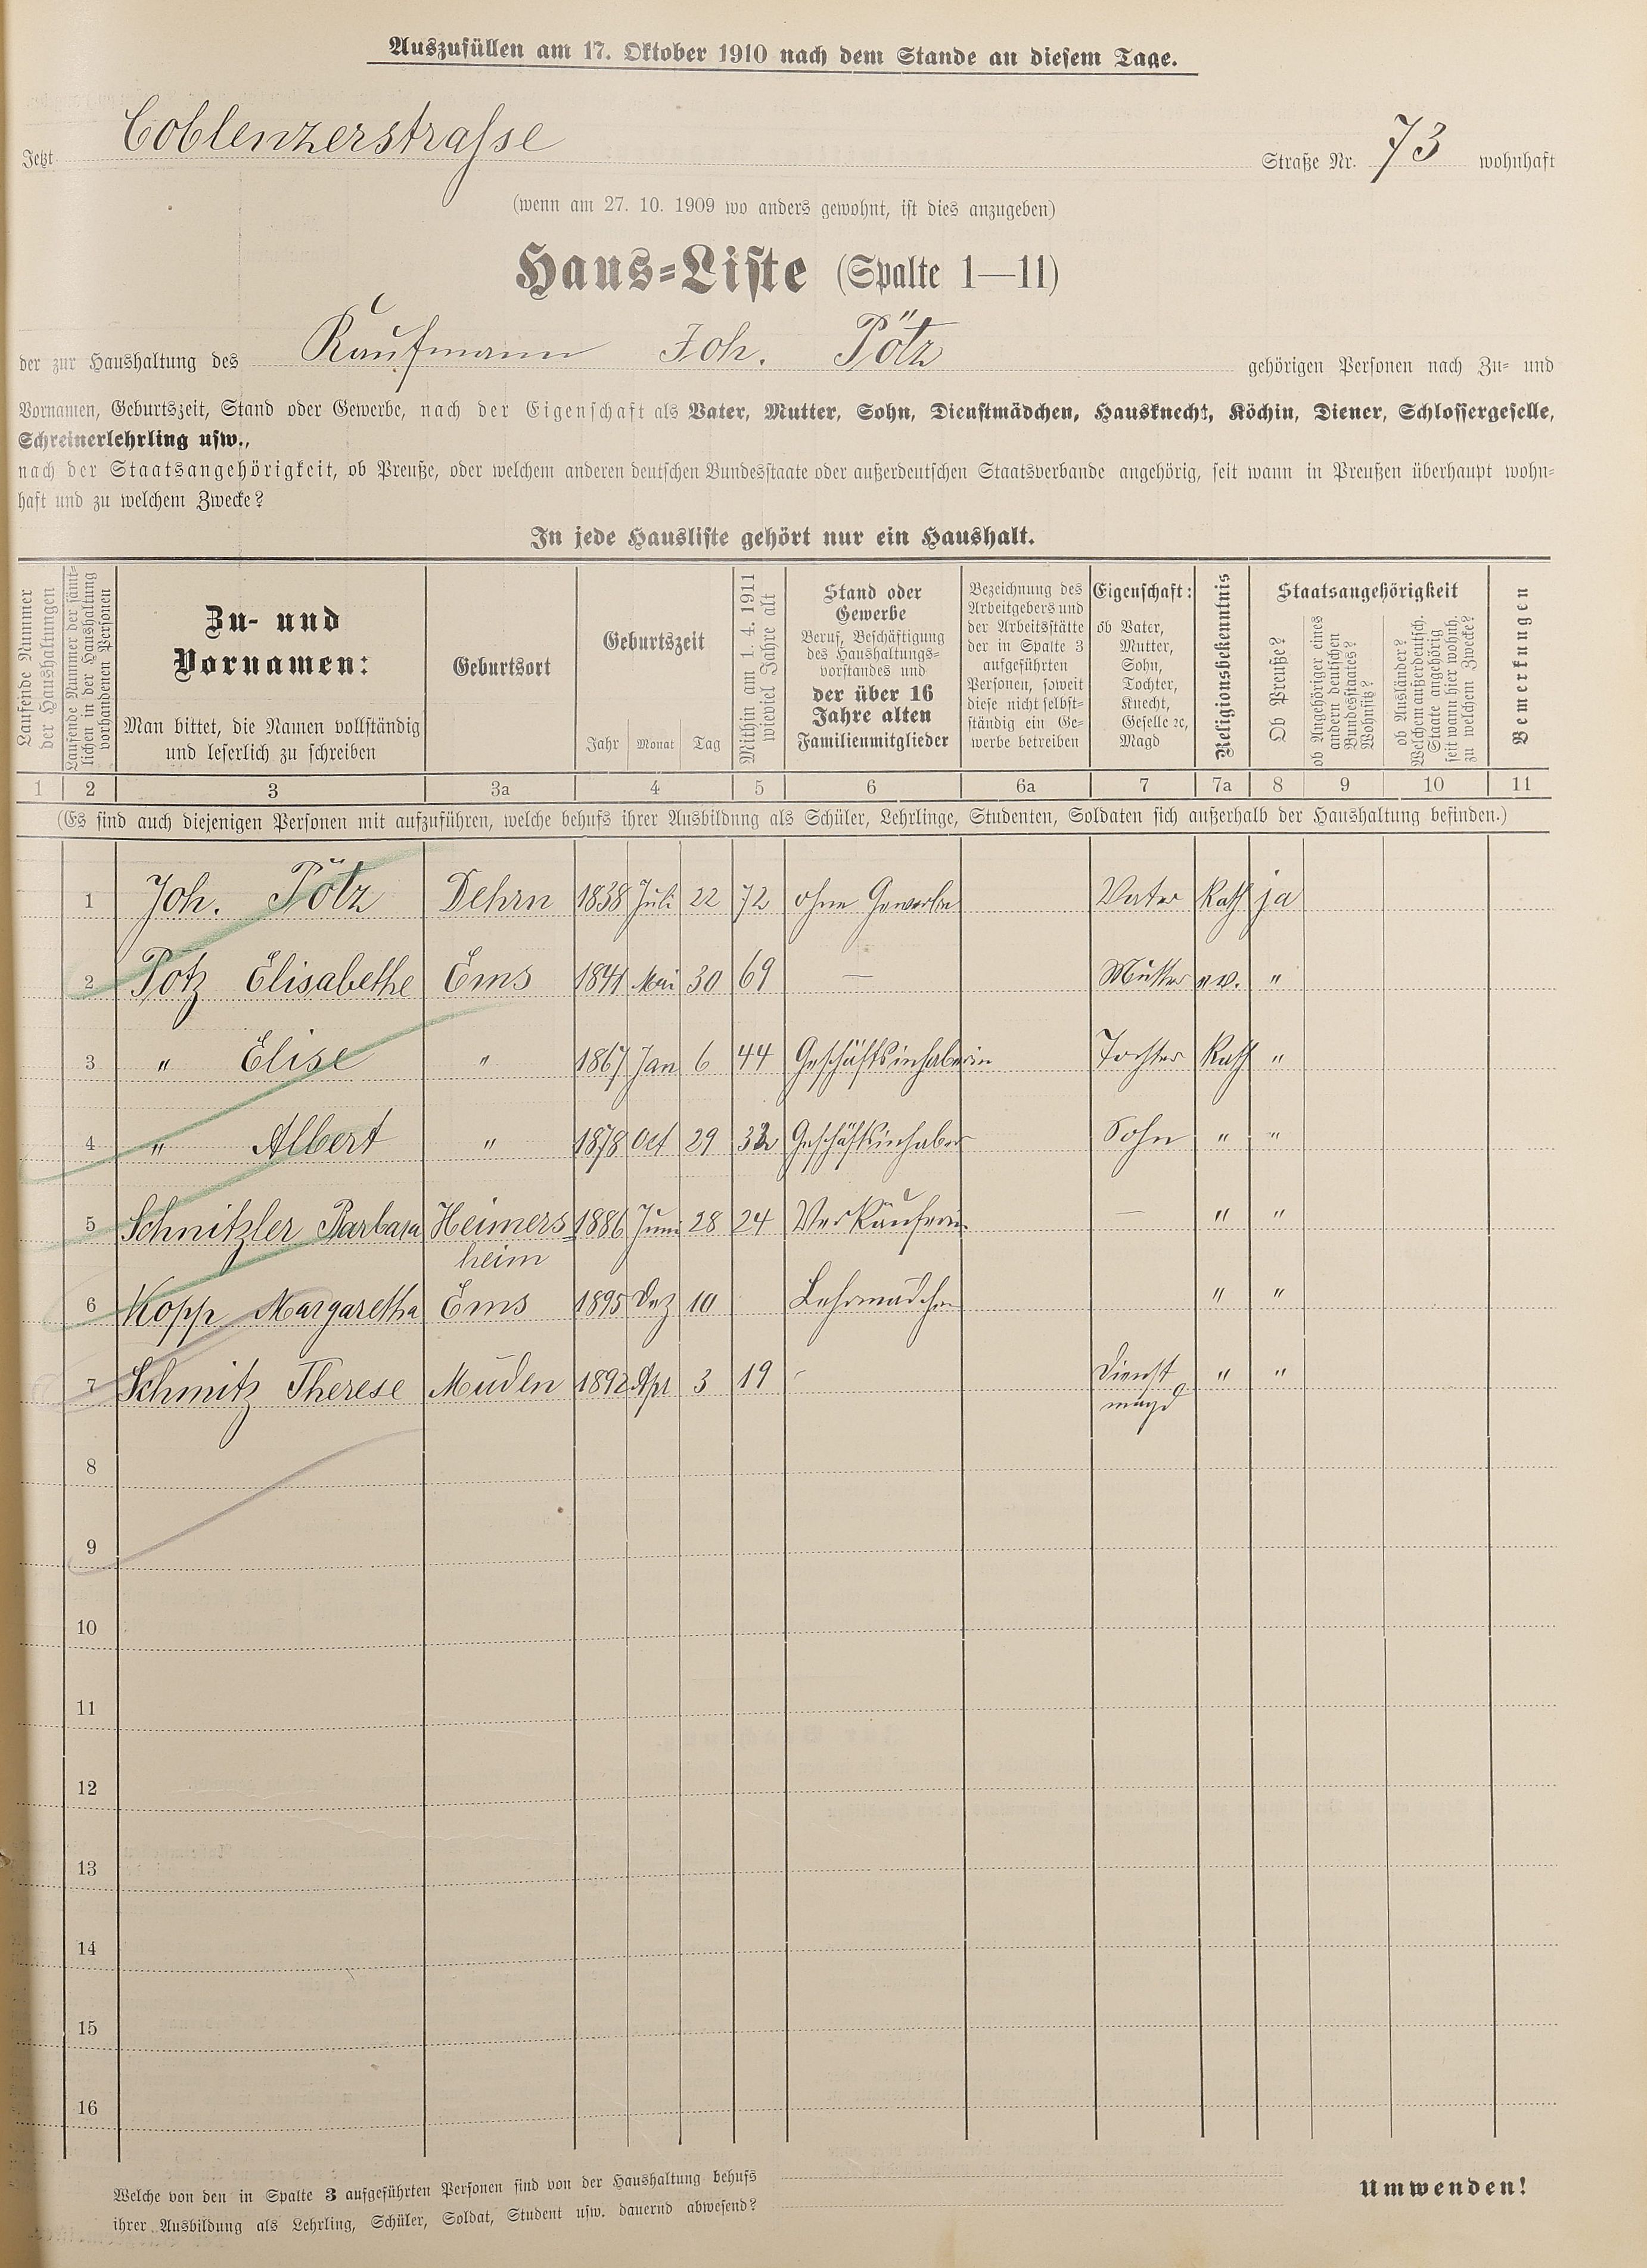 Auszufüllen am 17. Oktober 1910 nach dem Stande an diesem Tage.
Jetzt Coblenzerstrasse Straße Nr. 73 wohnhaft
(wenn am 27. 10. 1909 wo anders gewohnt, ist dies anzugeben)
Haus-Liste (Spalte 1—11)
der zur Haushaltung des Kaufmann Joh. Pötz gehörigen Personen nach Zu- und
Vornamen, Geburtszeit, Stand oder Gewerbe, nach der Eigenschaft als Vater, Mutter, Sohn, Dienstmädchen, Hausknecht, Köchin, Diener, Schlossergeselle,
Schreinerlehrling usw.,
nach der Staatsangehörigkeit, ob Preuße, oder welchem anderen deutschen Bundesstaate oder außerdeutschen Staatsverbande angehörig, seit wann in Preußen überhaupt wohn-
haft und zu welchem Zwecke?
In jede Hausliste gehört nur ein Haushalt.
Laufende Nummer
der Haushaltungen
Laufende Nummer der sämt-
lichen in der Haushaltung
vorhandenen Personen
Zu- und
Vornamen:
Man bittet, die Namen vollständig
und leserlich zu schreiben
Geburtsort
Geburtszeit
Jahr Monat Tag
Mithin am 1. 4. 1911
wieviel Jahre alt
Stand oder
Gewerbe
Beruf, Beschäftigung
des Haushaltungs-
vorstandes und
der über 16
Jahre alten
Familienmitglieder
Bezeichnung des
Arbeitgebers und
der Arbeitsstätte
der in Spalte 3
aufgeführten
Personen, soweit
diese nicht selbst-
ständig ein Ge-
werbe betreiben
Eigenschaft:
ob Vater,
Mutter,
Sohn,
Tochter,
Knecht,
Geselle ꝛc,
Magd
Religionsbekenntnis
Staatsangehörigkeit
Ob Preuße?
ob Angehöriger eines
andern deutschen
Bundesstaates?
Wohnsitz?
ob Ausländer?
Welchem außerdeutsch.
Staate angehörig
seit wann hier wohnh.
zu welchem Zwecke?
Bemerkungen
1 2 3 3a 4 5 6 6a 7 7a 8 9 10 11
(Es sind auch diejenigen Personen mit aufzuführen, welche behufs ihrer Ausbildung als Schüler, Lehrlinge, Studenten, Soldaten sich außerhalb der Haushaltung befinden.)
1 Joh. Pötz Dehrn 1838 Juli 22 72 ohne Gewerbe Vater Kath ja
2 Pötz Elisabethe Ems 1841 Mai 30 69 — Mutter ev. "
3 " Elise " 1867 Jan 6 44 Geschäftsinhaberin Tochter Kath "
4 " Albert " 1878 Oct 29 32 Geschäftsinhaber Sohn " "
5 Schnitzler Barbara Heimers= 1886 Juni 28 24 Verkäuferin — " "
heim
6 Kopp Margaretha Ems 1895 Dez 10 Lehrmädchen " "
7 Schmitz Therese Müden 1892 Apr 3 19 - Dienst " "
magd
8
9
10
11
12
13
14
15
16
Welche von den in Spalte 3 aufgeführten Personen sind von der Haushaltung behufs
ihrer Ausbildung als Lehrling, Schüler, Soldat, Student usw. dauernd abwesend?
Umwenden!